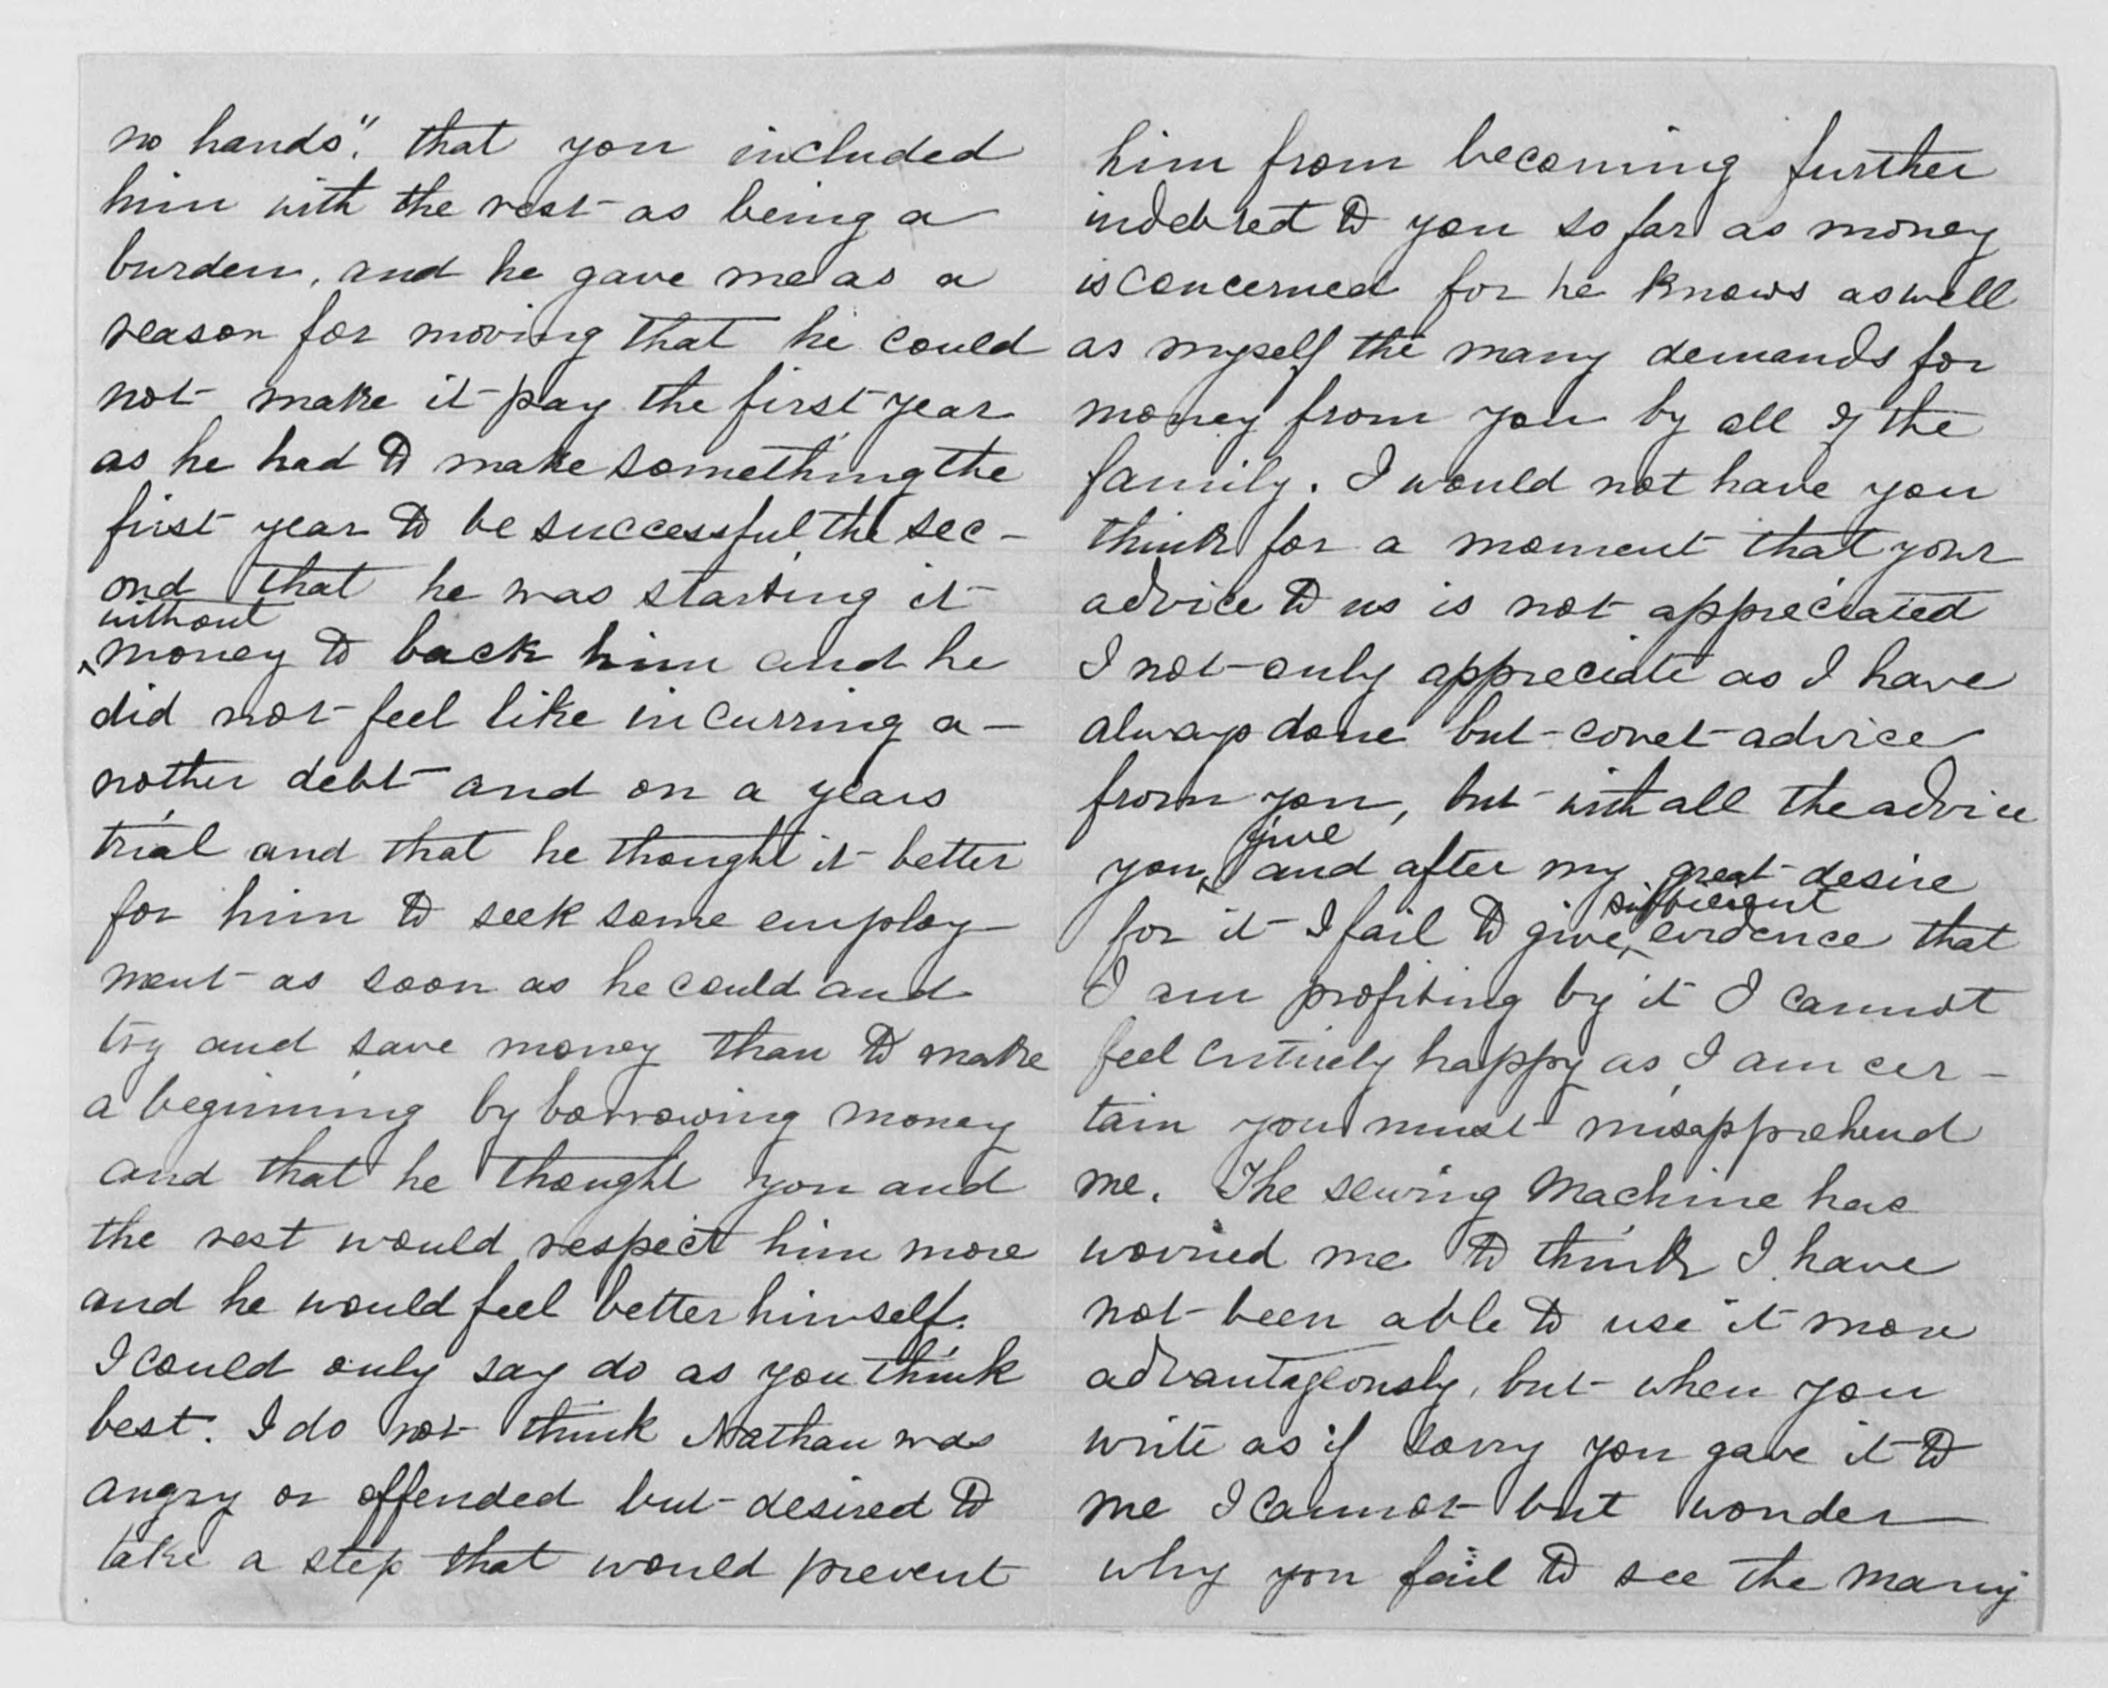 no hands". that you included
him with the rest as being a
burden, and he gave me as a
reason for moving that he could
not make it pay the first year
as he had to make something the
first year to be successful the sec-
ond that he was starting it
without
money to back him and he
did not feel like incurring a-
nother debt and on a years
trial and that he thought it better
for him to seek some employ-
ment as soon as he could and
try and save money than to make
a beginning by borrowing money
and that he thought you and
the rest would respect him more
and he would feel better himself.
I could only say do as you think
best. I do not think Nathan was
angry or offended but desired to
take a step that would prevent
him from becoming further
indebted to you so far as money
is concerned for he knows as well
as myself the many demands for
money from you by all of the
family. I would not have you
think for a moment that your
advice to us is not appreciated
I not only appreciate as I have
always done but covet advice
from you, but with all the advice
give
you and after my great desire
sufficient
for it I fail to give evidence that
I am profiting by it I cannot
feel entirely happy as I am cer-
tain you must misapprehend
me. The sewing Machine has
worried me to think I have
not been able to use it more
advantageously, but when you
write as if sorry you gave it to
me I cannot but wonder
why you fail to see the many